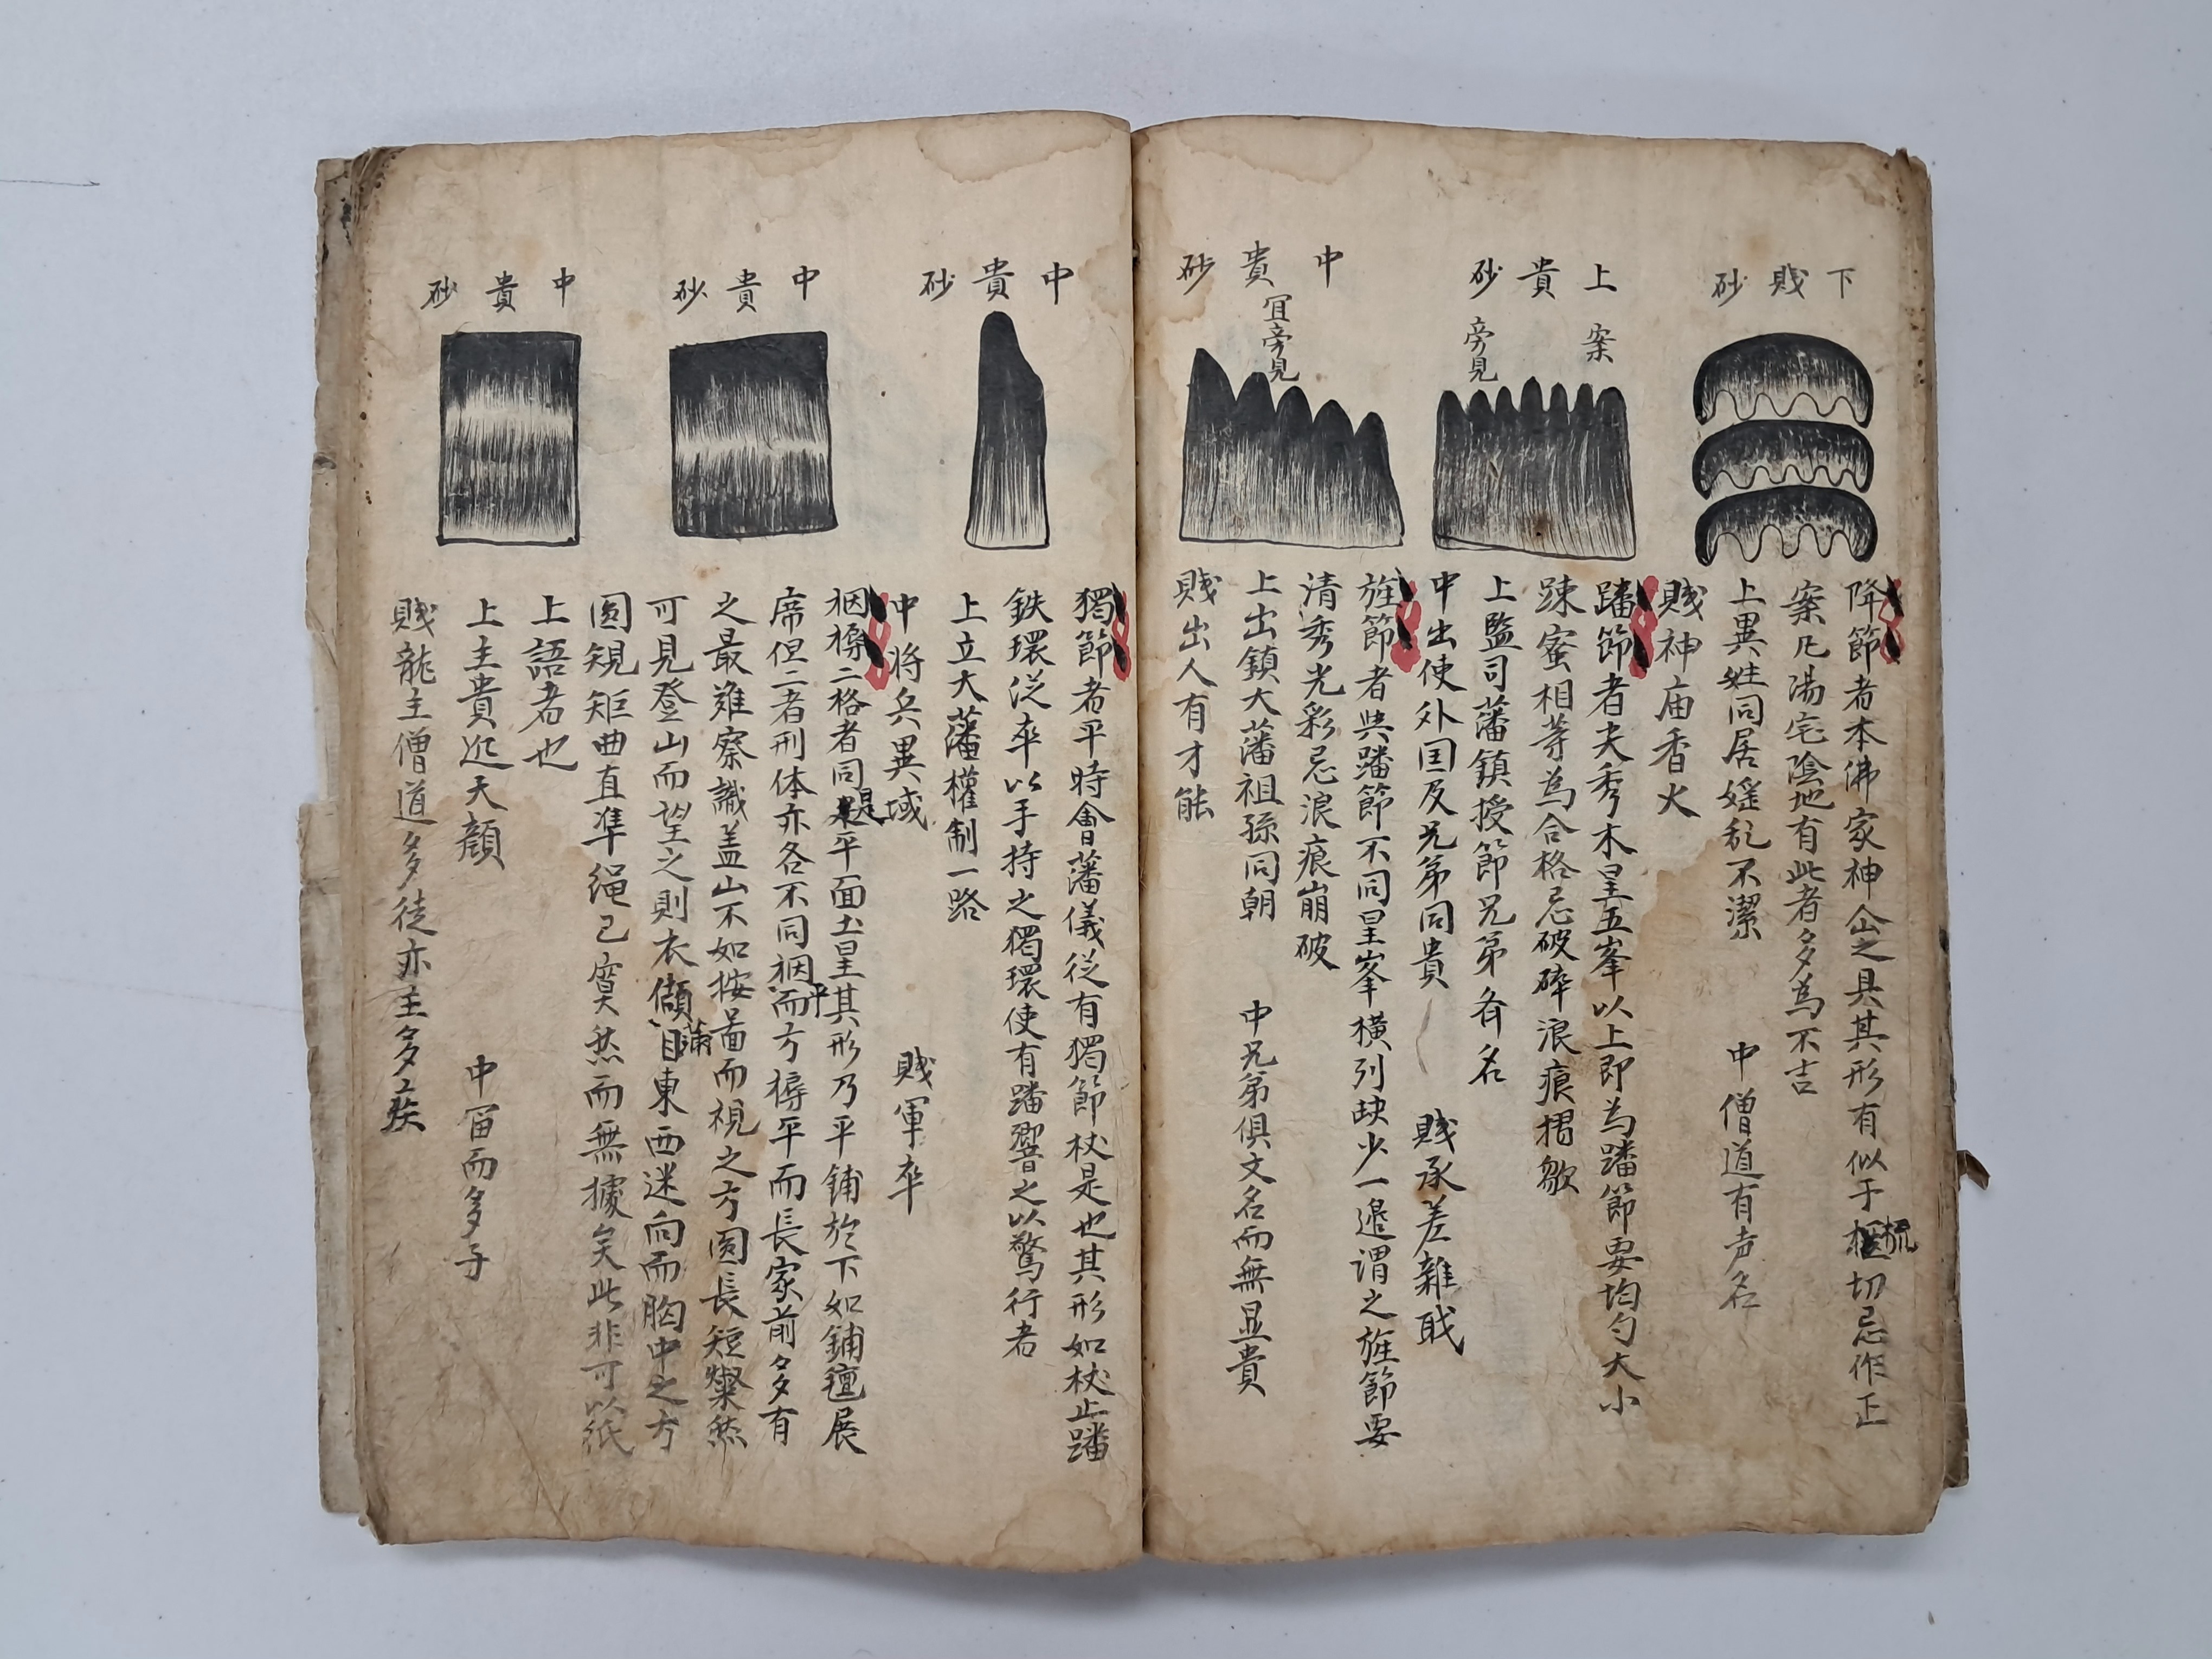 下賎砂
降節者本佛家神仚之具其形有似于梳切忌作正
案凢湯宅陰地有此者多為不吉
上異姓同居婬乱不潔 中僧道有声名
賎神庙香火
上貴砂
案
旁見
蹯節者夫秀木星五峯以上即為蹯節要均勻大小
踈蜜相等為合格忌破碎浪痕摺歛
上監司藩鎮授節兄弟有名
中出使外国及兄弟同貴 賎承差雜戝
中貴砂
宜旁見
旌節者與蹯節不同星峯橫列缺少一邉謂之旌節要
清秀光彩忌浪痕崩破
上出鎮大藩祖孫同朝 中兄弟俱文名而無显貴
賎出人有才能
中貴砂
獨節者平時會藩儀從有獨節杖是也其形如杖止蹯
鉄環從卒以手持之獨環使有蹯響之以驚行者
上立大藩權制一路
中將兵異域 賎軍卒
中貴砂
裀褥二格者同是平面土星其形乃平鋪於下如鋪氊展
席但二者刑体亦各不同裀平而方褥平而長家前多有
之最难察識盖山不如按畵而視之方圆長短粲然
可見登山而望之則衣傾目東西迷向而胸中之方
圆規矩曲直凖绳已寞然而無據矣此非可以紙
上語者也
中貴砂
上主貴近天顔 中富而多子
賎龍主僧道多徒亦主多疾